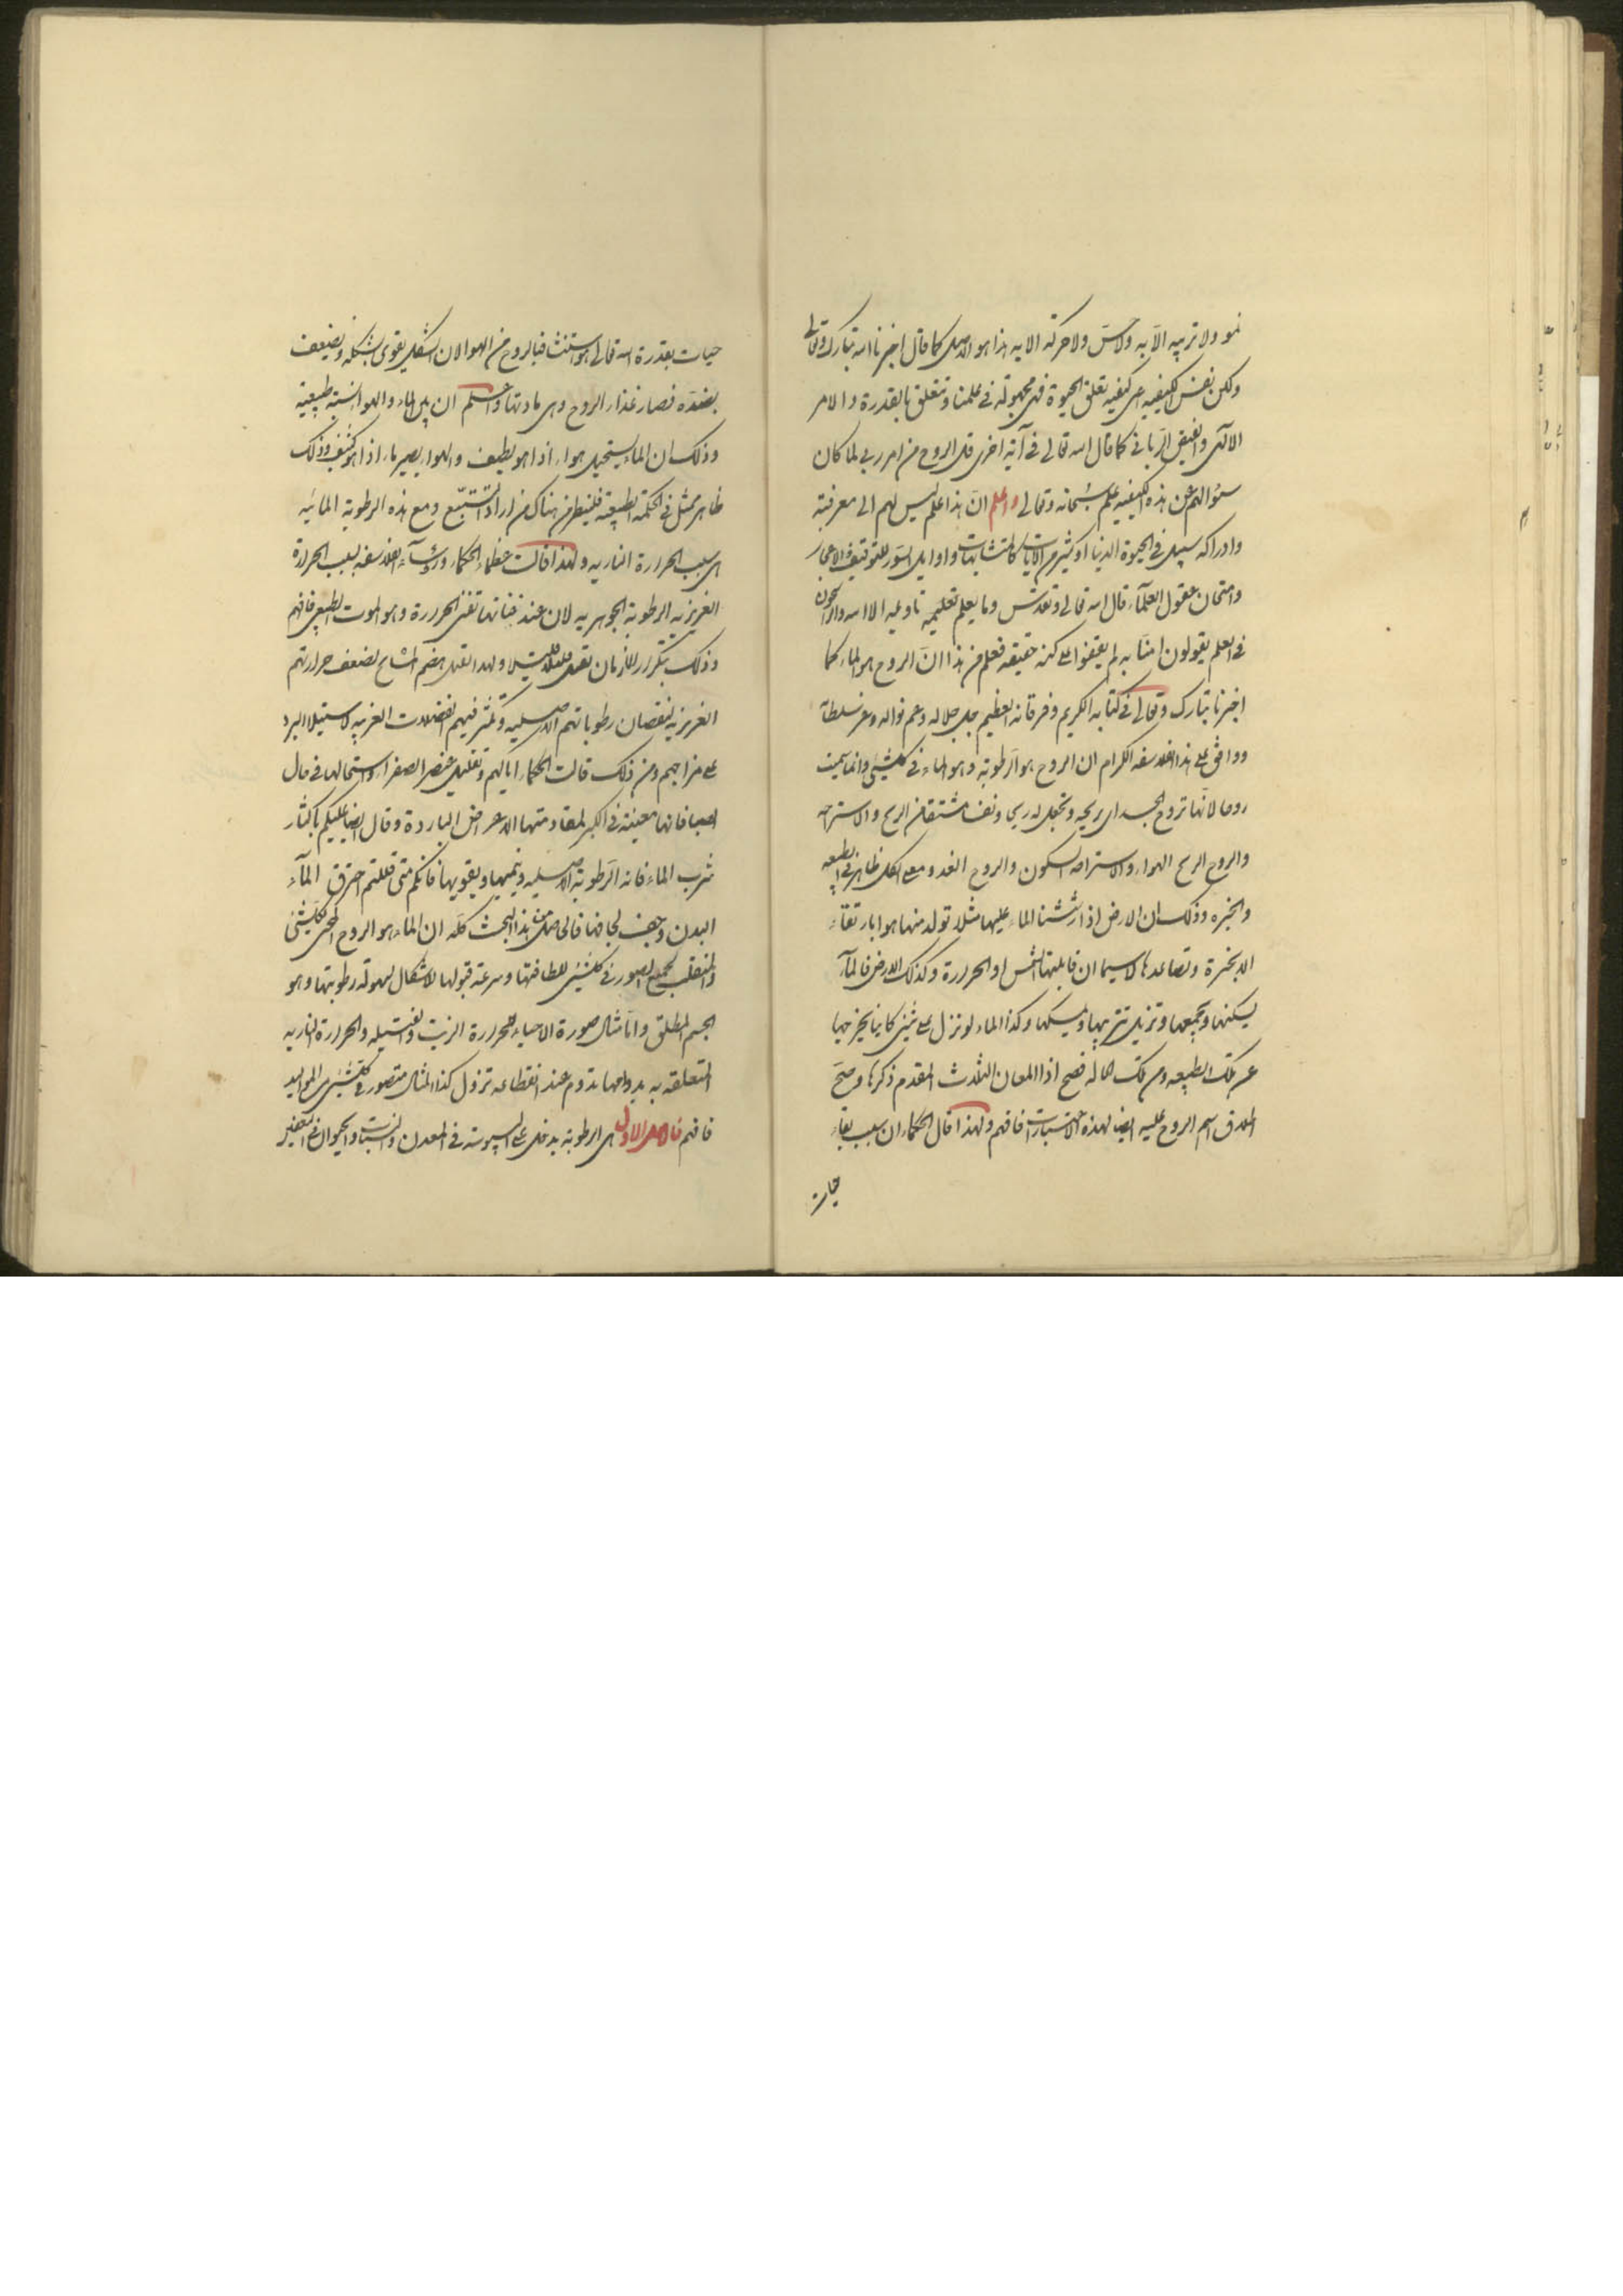 نمو ولا تربيه الّا به ولا حسّ ولا حركة الا به هذا هو الاصل كما قال اخبرنا الله تبارك وتعالى
ولكن نفس الكيفيه اى كيفيه تعلق الحيوة فهى مجهولة فى علمنا وتتعلق بالقدرة والامر
الالهى والفيض الربانى كما قال الله تعالى فى آية اخرى قل الروح من امر ربى لما كان
سؤالهم عن هذه الكيفيه علم سبحانه وتعالى واعلم انّ هذا علم ليس لهم الى معرفته
وادراكه سبيل فى الحيوة الدنيا او كثير من الآيات كالمتشابهات واوايل السور للتوقيف والاعجاز
وامتحان عقول العلمآء قال الله تعالى وتقدس وما يعلم تاويله الا الله والراسخون
فى العلم يقولون امنّا به لم يقفوا على كنه حقيقه فعلم من هذا انّ الروح هو الماء كما
اخبرنا تبارك وتعالى فى كتابه الكريم وفرقانه العظيم جل جلاله وعم نواله وعز سلطانه
ووافق على هذا الفلاسفه الكرام ان الروح هو الرطوبة وهو الماء فى كلشيئ وانما سميت
روحا لانّها تروح الجسد اى تريحه وتجعل له ريحا ونفسا مشتقا من الريح والاستراحه
والروح الريح الهواء والاستراحه السكون والروح الغدو ومعنى الكل ظاهر فى الطبيعه
والخبره وذلك ان الارض اذا رششنا الماء عليها مثلا تولد منها هوا بارتقاء
الابخرة وتصاعدها لاسيما ان قابلتها الشمس او الحرارة وكذلك الارض فالمآء
يسكنها ويجمعها وتزيل تتربيها ويمسكها وكذا الماء لو نزل على شيئ كاينا يخرجها
عن تلك الطبيعه ومن تلك الحاله فصح اذا المعان الثلاث المقدم ذكرها وصح
اطلاق اسم الروح عليه ايضا لهذه الاعتبارات فافهم ولهذا قال الحكماء ان سبب بقاء
حيات
حيات بقدرة الله تعالى هو استنشاقنا بالروح من الهوا لان الشكل يقوى بشكله ويضعف
بضده فصار غذاء الروح وهى مادتها واعلم ان بين الماء والهوا نسبة طبيعية
وذلك ان الماء يستحيل هواء اذا هو لطيف والهوا يصير ماء اذا هو كثيف وذلك
ظاهر يمثل فى الحكمة الطبيعية فلينظر من هناك من اراد التتبّع ومع هذه الرطوبة المائيه
هى سبب الحرارة الناريه ولهذا قالت عظماء الحكماء ورؤسآء الفلاسفه لسبب الحرارة
الغريزيه الرطوبة الجوهريه لان عند فنائها تفنى الحرارة وهو الموت الطبيعى فافهم
وذلك بتكرر الازمان تقل قليلا قليلا ولهذا تقل هضم المشايخ لضعف حرارتهم
الغريزيه لنقصان رطوباتهم الاصليه وتكثر فيهم الفضلات الغريبه لاستيلاء البرد
على مزاجهم ومن ذلك قالت الحكماء اياكم وتقليل عنصر الصفراء واستحالها فى حال
الصبا فانها معينة فى الكبر لمقاومتها الاعراض الباردة وقال ايضا عليكم باكثار
شرب الماء فانه الرطوبة الاصليه وينميها ويقويها فانكم متى قللتم احترق المآء
البدن وجف لجافها فالحاصل من هذا البحث كله ان الماء هو الروح المحى لكلشيئ
والمنقلب لجميع الصور فى كلشيئ للطافتها وسرعة قبولها للاشكال لسهولة رطوبتها وهو
الجسم المطلق وامّا مثال صورة الاحياء للحرارة الزيت والفتيله والحرارة الناريه
المتعلقه به بدوامها يدوم عند انقطاعه تزول كذا المثال متصور فى كلشيئ من المواليد
فافهم فالاصل الاول هى الرطوبة يدخل على اليبوسة فى المعدن والنبات والحيوان فى التعفين